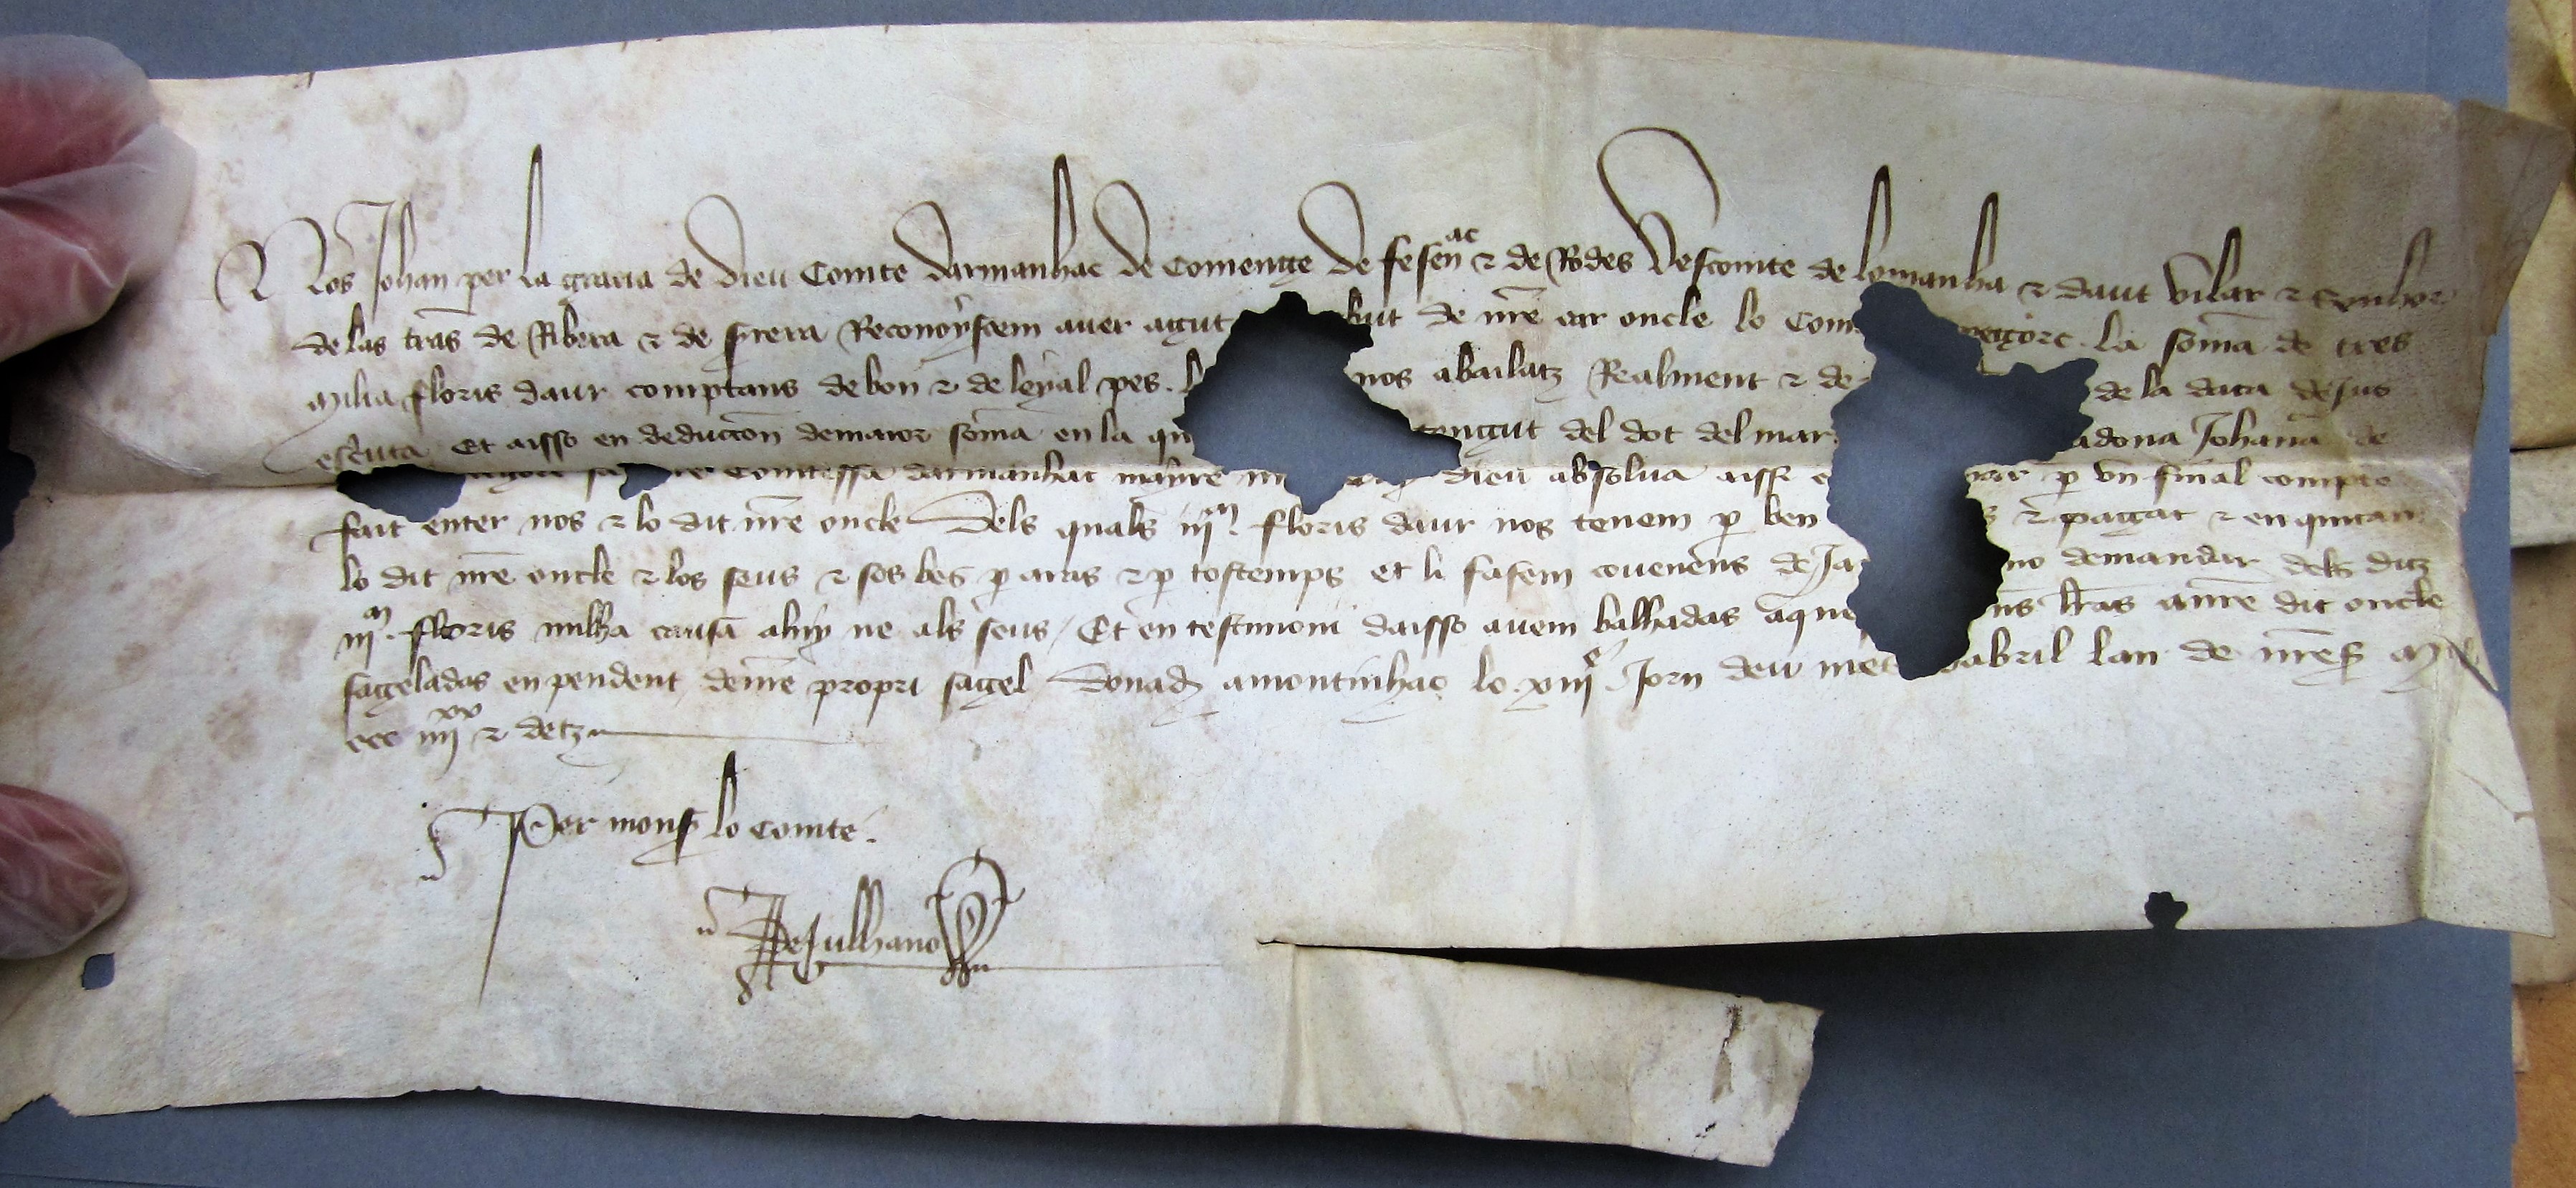 Nos Johan per la gracia de dieu Comte darmanhac de Comenge de fesenac & de Rodes Vescomte de lomanha & daut vilar & senhor
de las tras de Ribera & de Reconoyscem aver agut but de nre car oncle lo Com regorc la soma de tres
milia floris daur comptans de bon & de leyal pes. nos a bailatz Realment & de de la data desus
escriuta Et aisso en deduccion de maior soma en la qu tengut del dot del mar adona Johana de
Comtessa darmanhac mayre dieu absolva aissi p un final compte
fait enter nos & lo dit nre oncle Dels quals iijm floris daur nos tenem p ben & pagat & en quitam
lo dit nre oncle & los seus & sos bes p aras & p tostemps et li fasem covenens de Ja no demandar dels ditz
iijm. floris nulha causa a luy ne als seus / Et en testimoni daisso avem balhadas aque ns lras a nre dit oncle
sageladas en pendent de nre propri sagel Donad a montinhac lo xiije Jorn deu me dabril lan de nres M
ccc iiijxx & detz
Per mons lo comte.
De Julhano